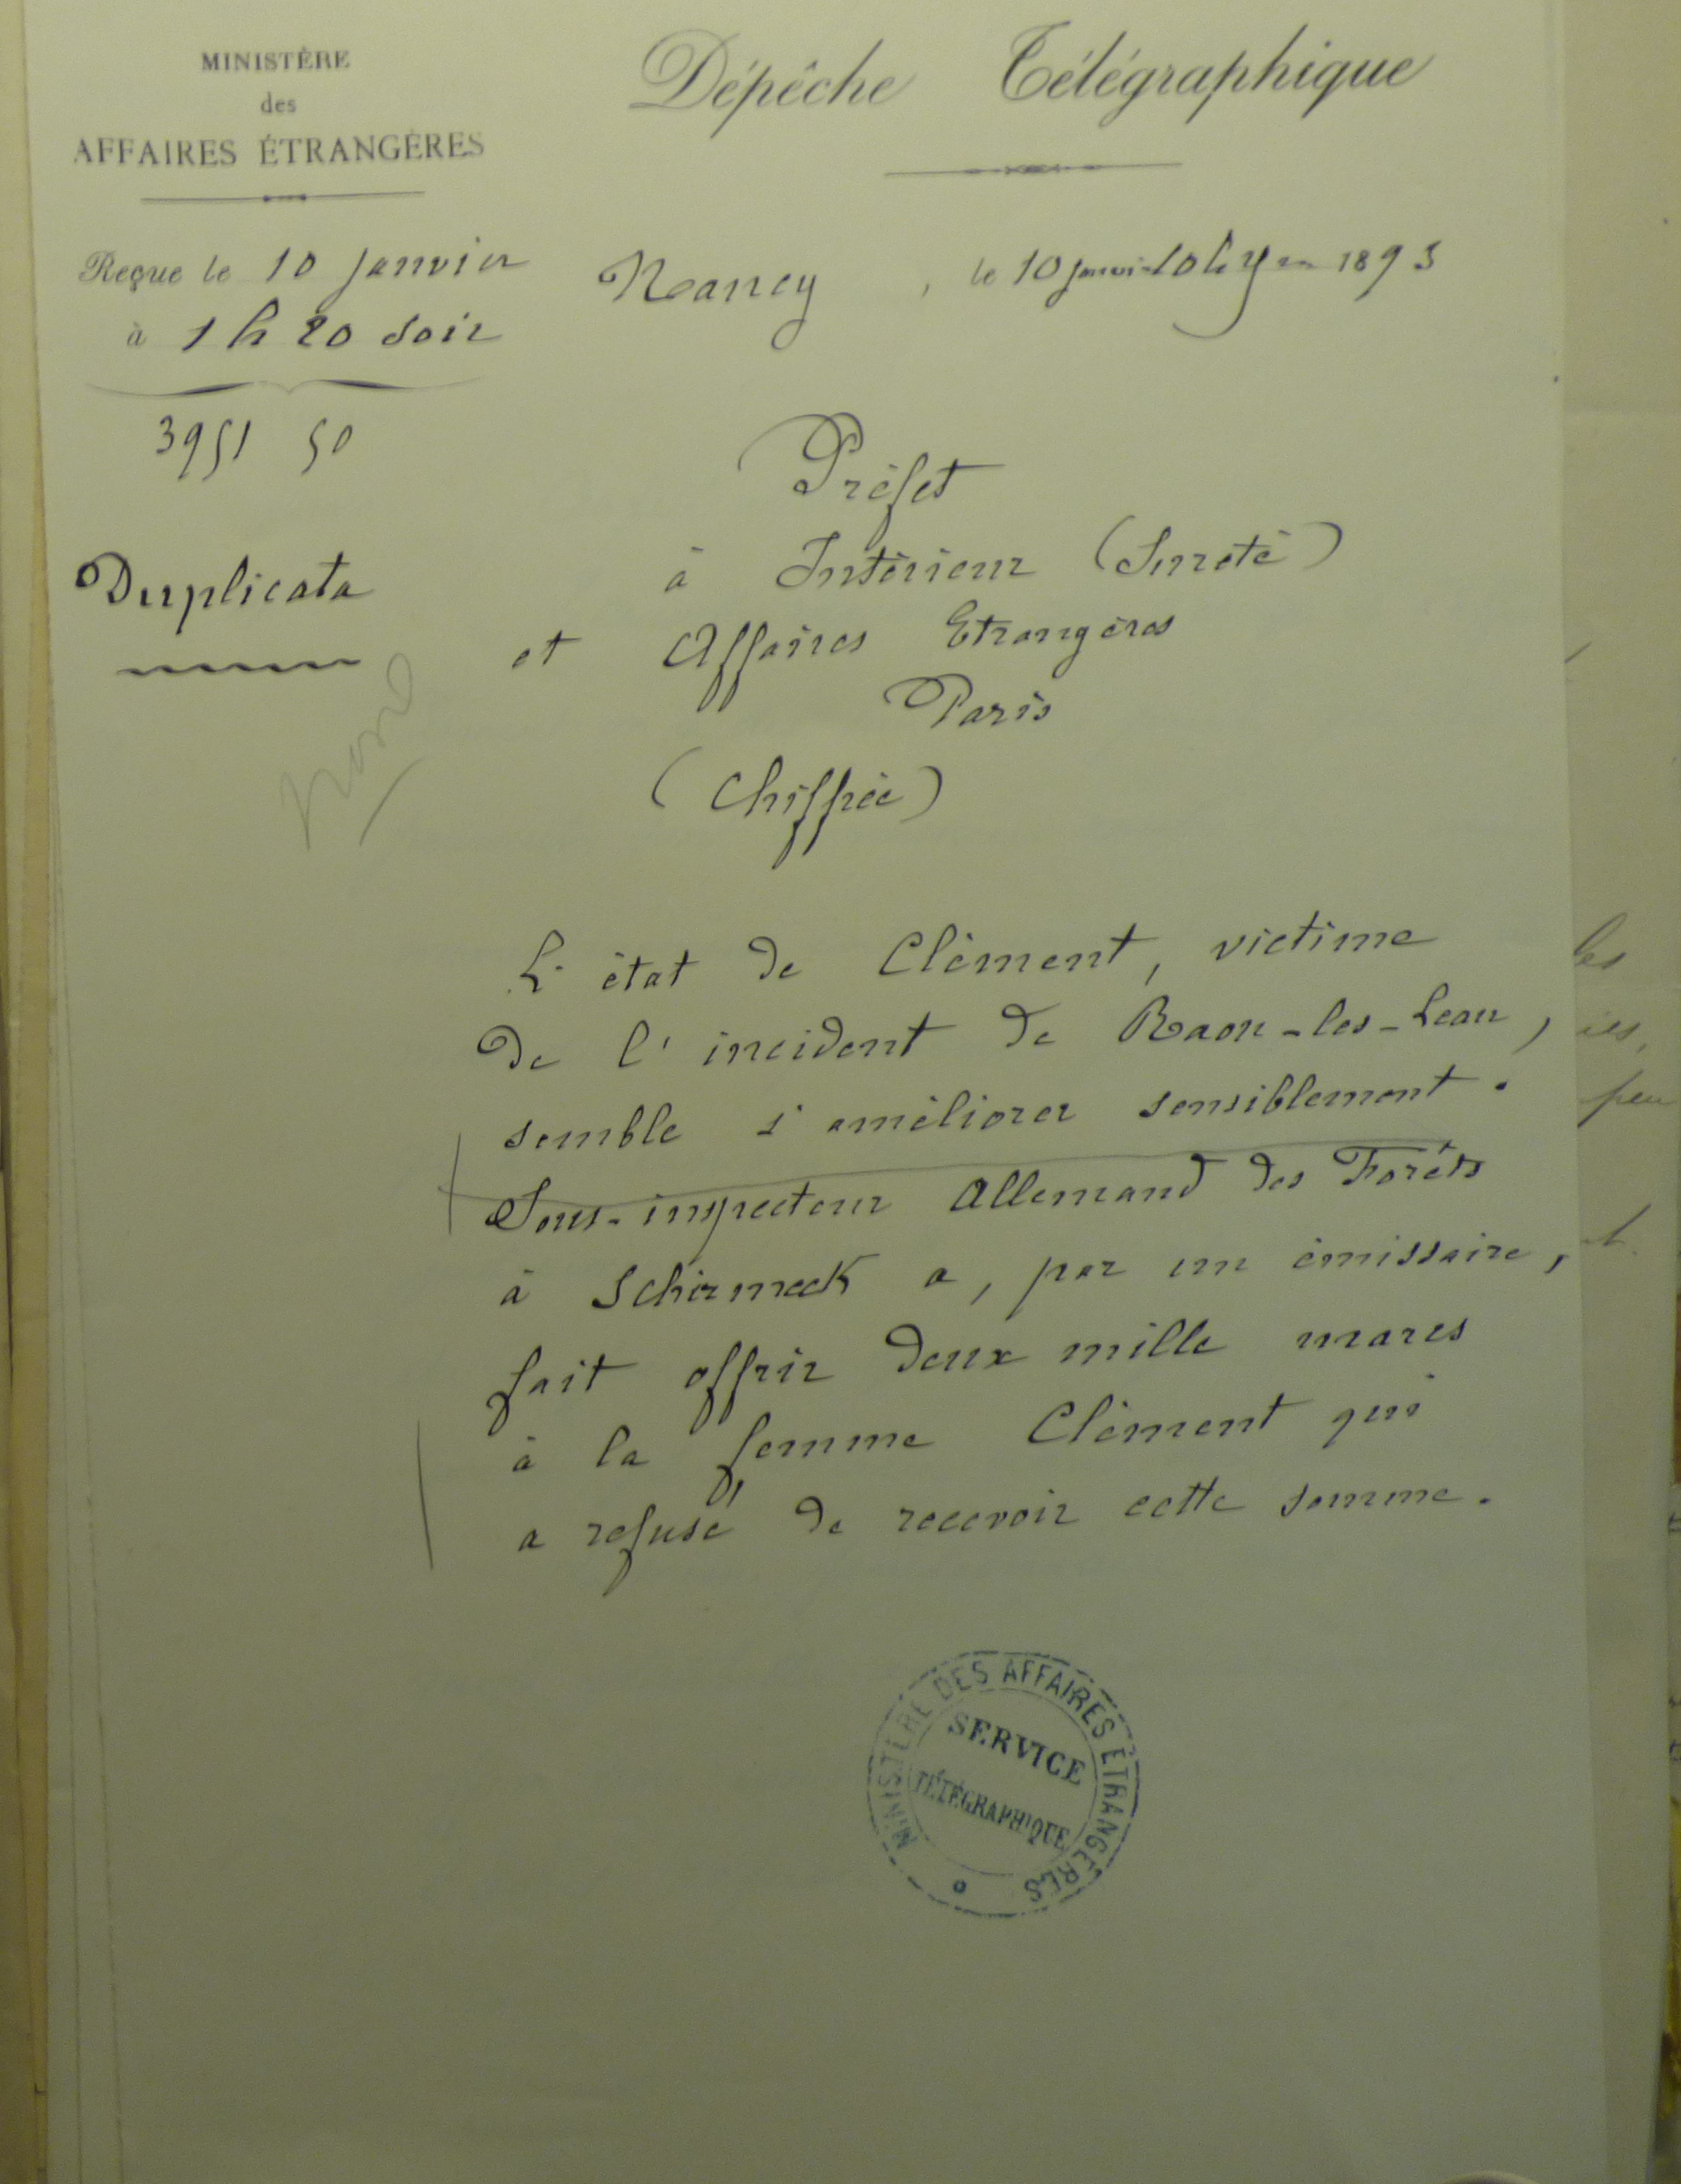 MINISTÈRE
des
AFFAIRES ÉTRANGÈRES
Dépêche Télégraphique
Reçue le 10 Janvier
à 1 h 20 soir
3951 50
Nancy, le 10 janvi 10 h 1893
Duplicata
Préfet
à Intérieur (Sureté)
et Affaires Etrangères
Paris
(Chiffrée)
L'état de Clément, victime
de l'incident de Raon-les-Leau,
semble s'améliorer sensiblement.
Sous-inspecteur Allemand des Forêts
à Schirmeck a, par un émissaire,
fait offrir deux mille marcs
à la femme Clément qui
a refusé de recevoir cette somme.
MINISTÈRE DES AFFAIRES ÉTRANGÈRES
SERVICE
TÉLÉGRAPHIQUE
les
ies,
peu